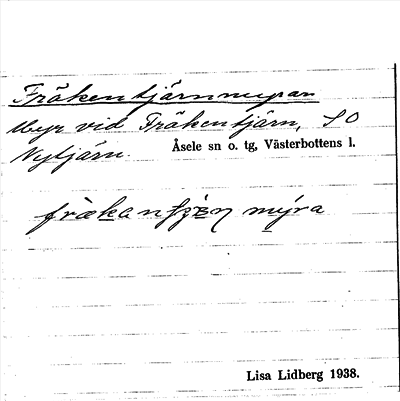 Fräkentjärnmyran
Myr vid Fräkentjärn, SO
Nytjärn. Åsele sn o. tg, Västerbottens l.
frækan myra
Lisa Lidberg 1938.